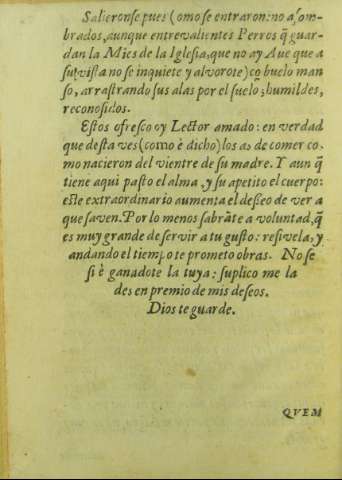 Salieronse pues (omo se entraron: no asom-
brados, aunque entre valientes Perros q̃ guar-
dan la Mies de la Iglesia, que no ay Aue que a
su vista no se inquiete y alvorote) cõ buelo man
so, arrastrando sus alas por el suelo; humildes,
reconosidos.
Estos ofresco oy Lector amado: en verdad
que desta ves (como è dicho) los as de comer co-
mo nacieron del vientre de su madre. Y aun q̃
tiene aqui pasto el alma, y su apetito el cuerpo:
este extraordinario aumenta el deseo de ver a
que saven. Por lo menos sabràte a voluntad, q̃
es muy grande de servir a tu gusto: resivela, y
andando el tiempo te prometo obras. No se
si è ganadote la tuya; suplico me la
des en premio de mis deseos.
Dios te guarde.
QVEM